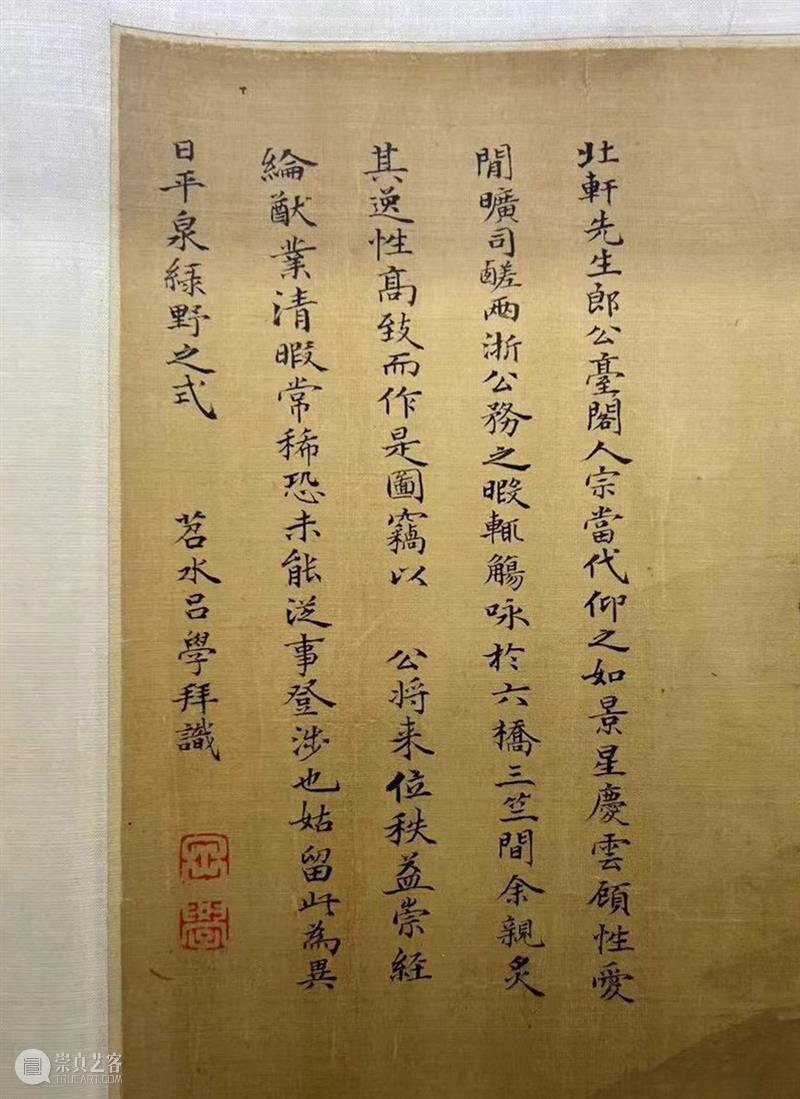 北軒先生郎公臺閣人宗當代仰之如景星慶雲顧性愛
閒曠司鹺兩浙公務之暇輒觴咏於六橋三竺間余親炙
其逸性高致而作是圖竊以 公將来位秩益崇経
綸猷業清暇常稀恐未能從事登涉也姑留此為異
日平泉綠野之式 苕水呂學拜識
崇真艺客
TRUEART.COM